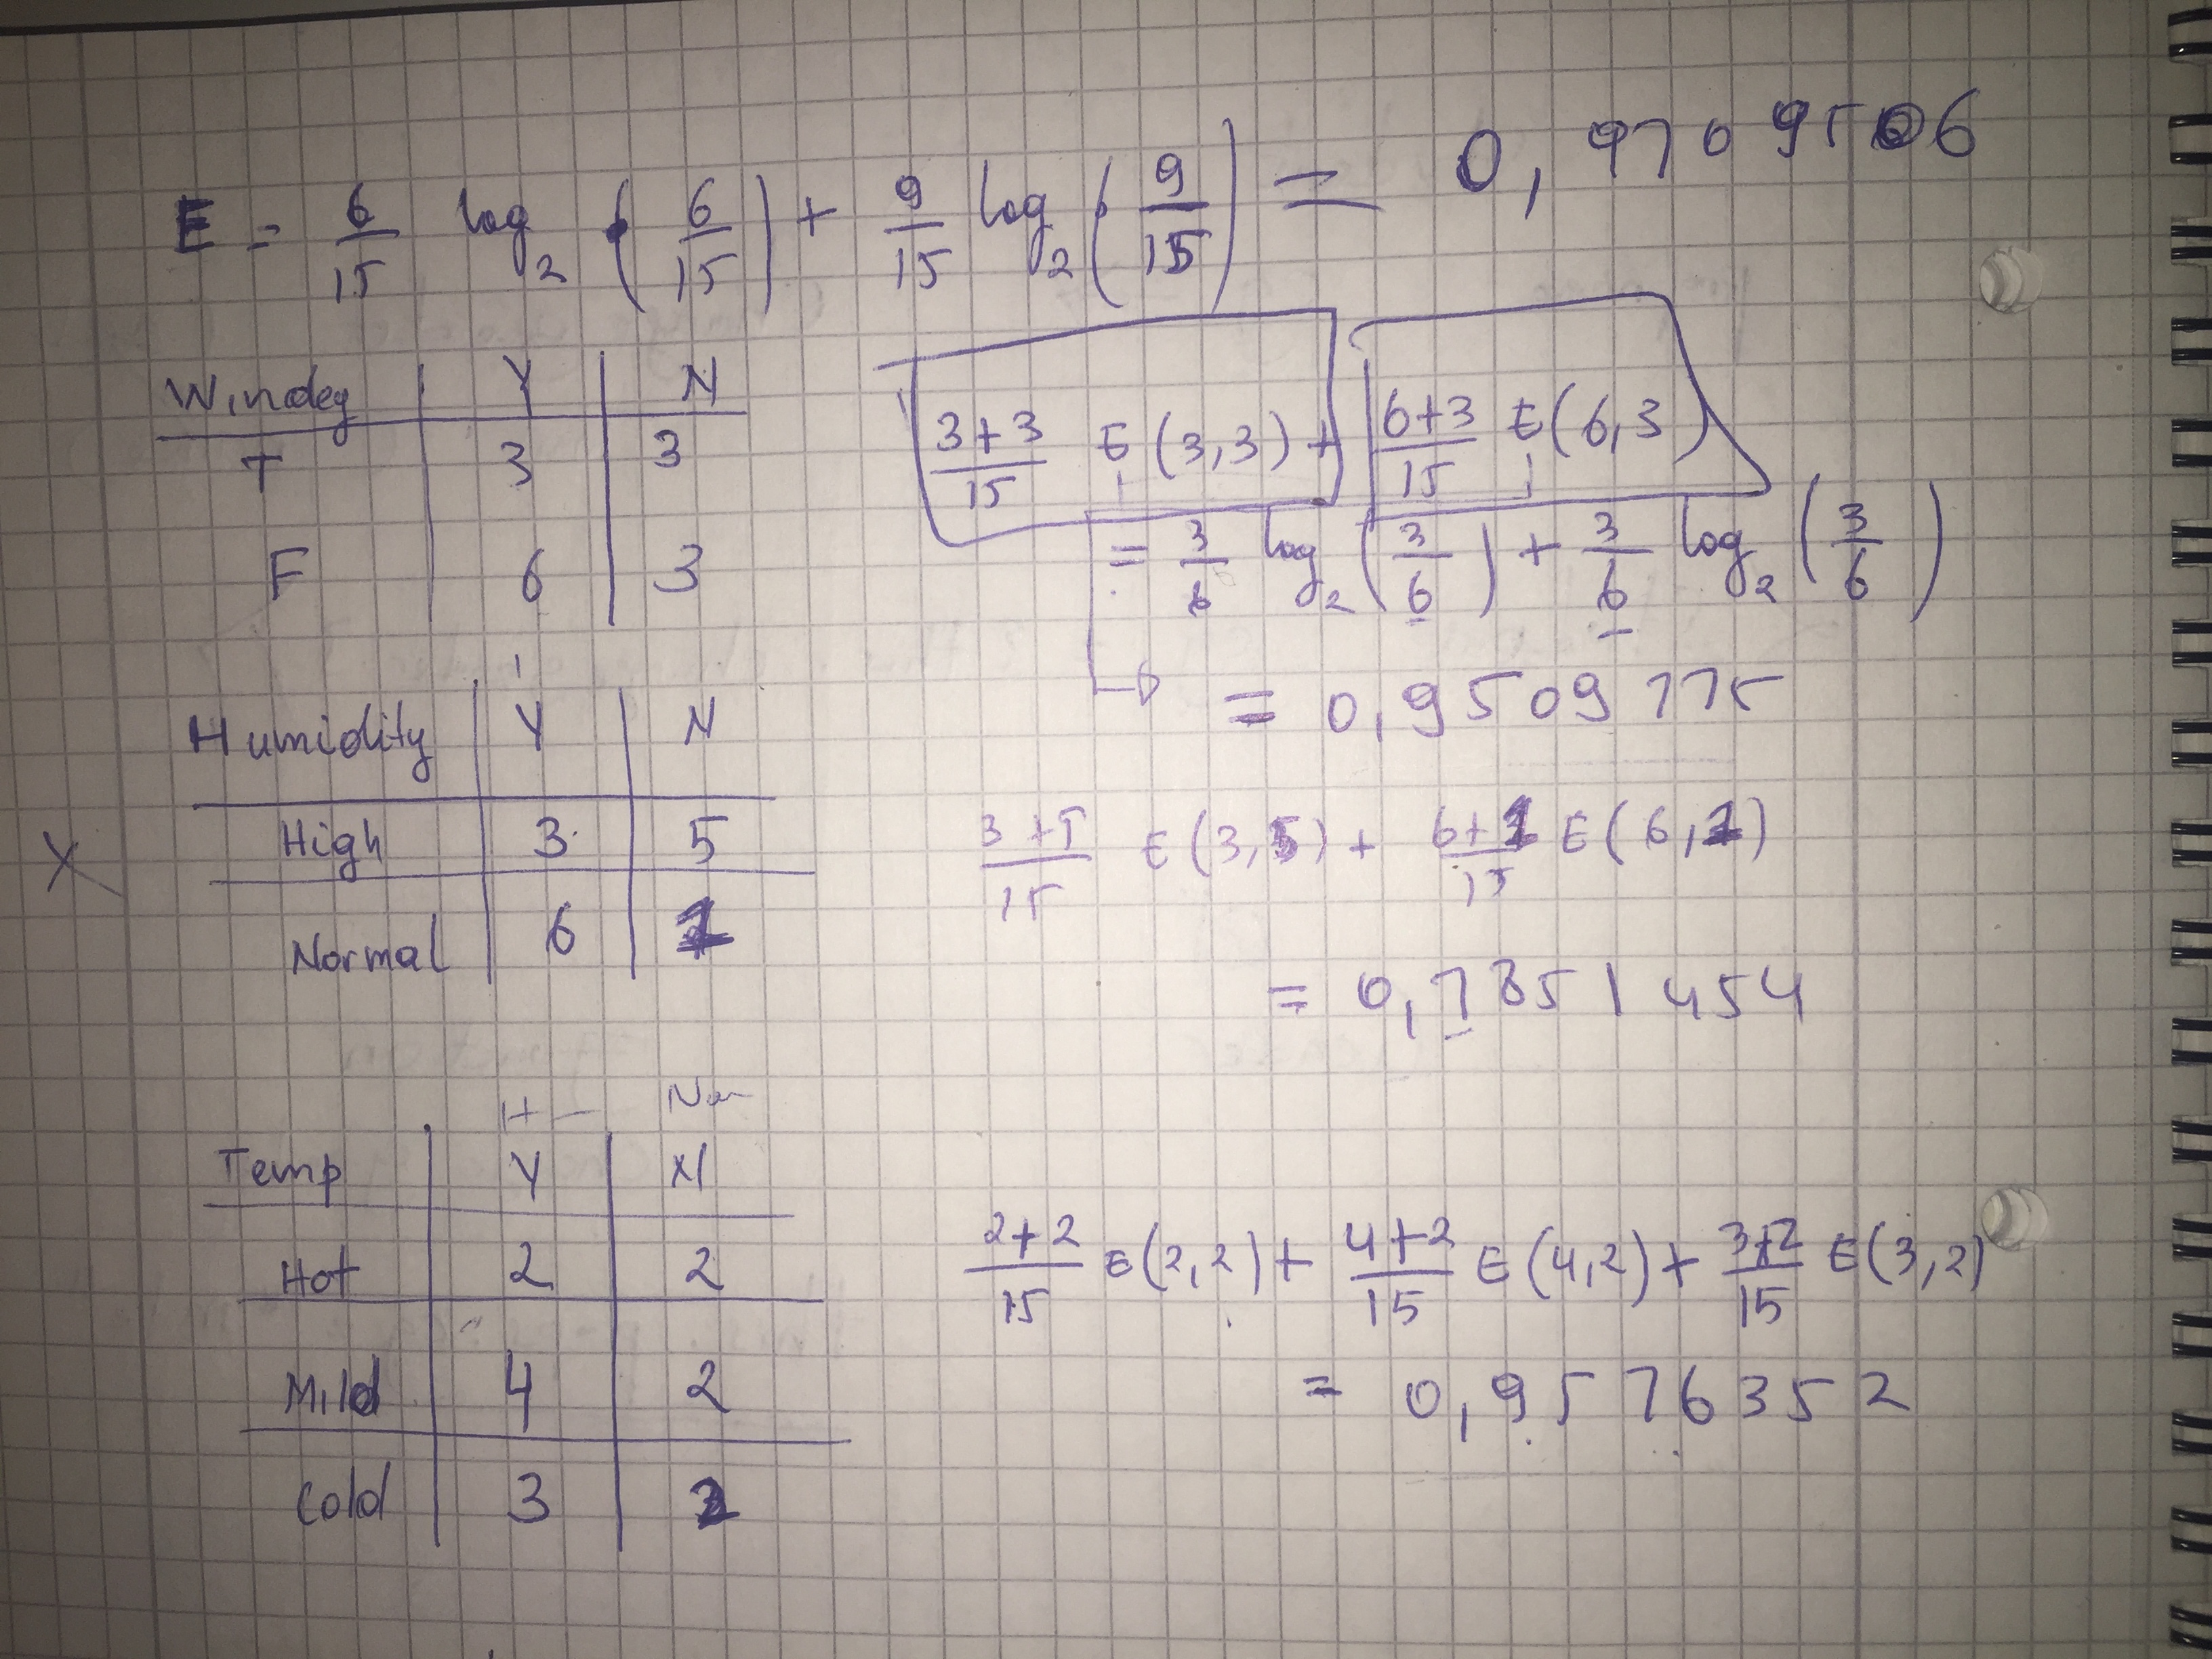 E = 6/15 log₂ (6/15) + 9/15 log₂ (9/15) = 0,9709506
Windey | Y | N
T | 3 | 3
F | 6 | 3
3+3/15 E (3,3) + 6+3/15 E(6,3)
= 3/6 log₂ (3/6) + 3/6 log₂ (3/6)
= 0,9509775
Humidity | Y | N
High | 3 | 5
Normal | 6 | 1
3+5/15 E(3,5) + 6+1/15 E(6,1)
X
= 0,7851454
H
Temp | Y | N
Hot | 2 | 2
Mild | 4 | 2
Cold | 3 | 2
2+2/15 E(2,2) + 4+2/15 E(4,2) + 3+2/15 E(3,2)
= 0,9576352